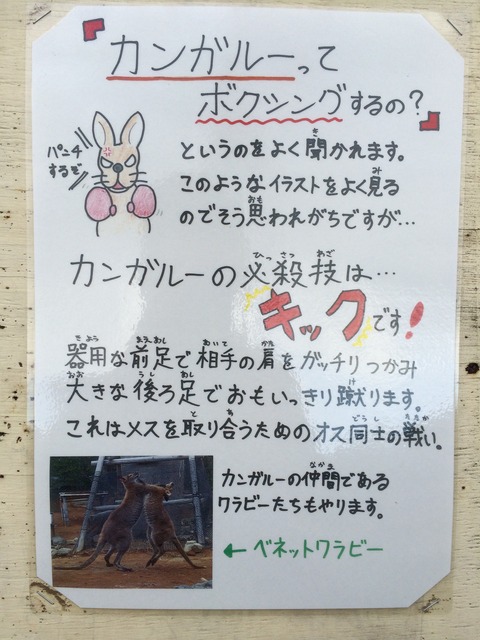 「カンガルーって
ボクシングするの？」
パンチするぞ
というのをよく聞かれます。
このようなイラストをよく見る
のでそう思われがちですが…
カンガルーの必殺技は…
キックです！
器用な前足で相手の肩をガッチリつかみ
大きな後ろ足でおもいっきり蹴ります。
これはメスを取り合うためのオス同士の戦い。
カンガルーの仲間である
ワラビーたちもやります。
←ベネットワラビー